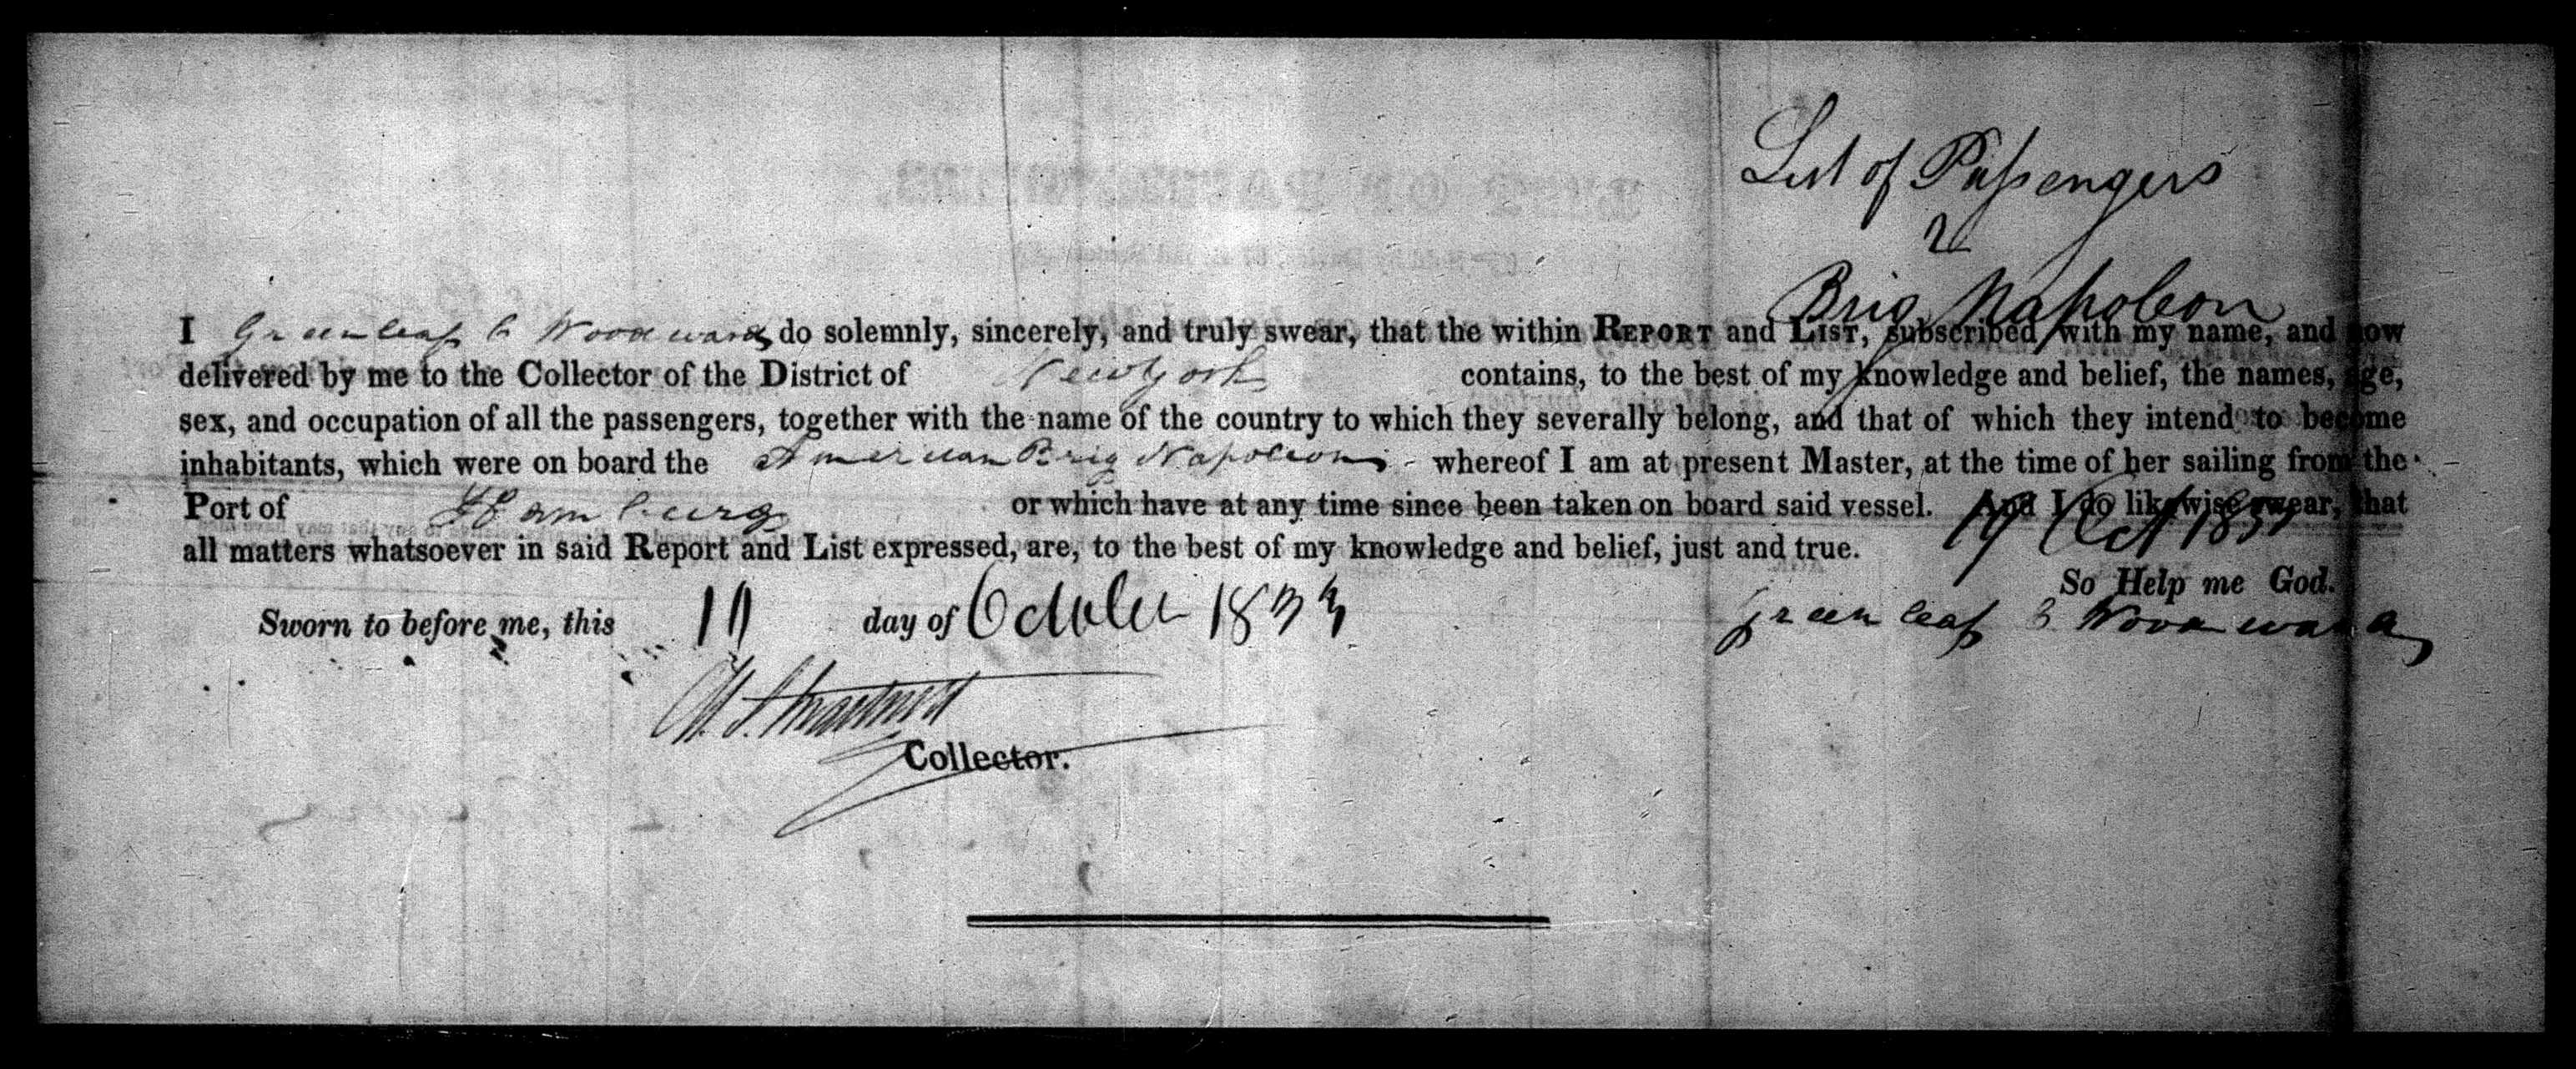 List of Passengers
Brig Napoleon
I Greenleaf C Woodward do solemnly, sincerely, and truly swear, that the within REPORT and LIST, subscribed with my name, and now
delivered by me to the Collector of the District of New York contains, to the best of my knowledge and belief, the names, age,
sex, and occupation of all the passengers, together with the name of the country to which they severally belong, and that of which they intend to become
inhabitants, which were on board the American Brig Napoleon whereof I am at present Master, at the time of her sailing from the
Port of Hamburg or which have at any time since been taken on board said vessel. And I do likewise swear, that
all matters whatsoever in said Report and List expressed, are, to the best of my knowledge and belief, just and true.
19 Oct
So Help me God.
Sworn to before me, this day of October 1833
Greenleaf C Woodward
Collector.